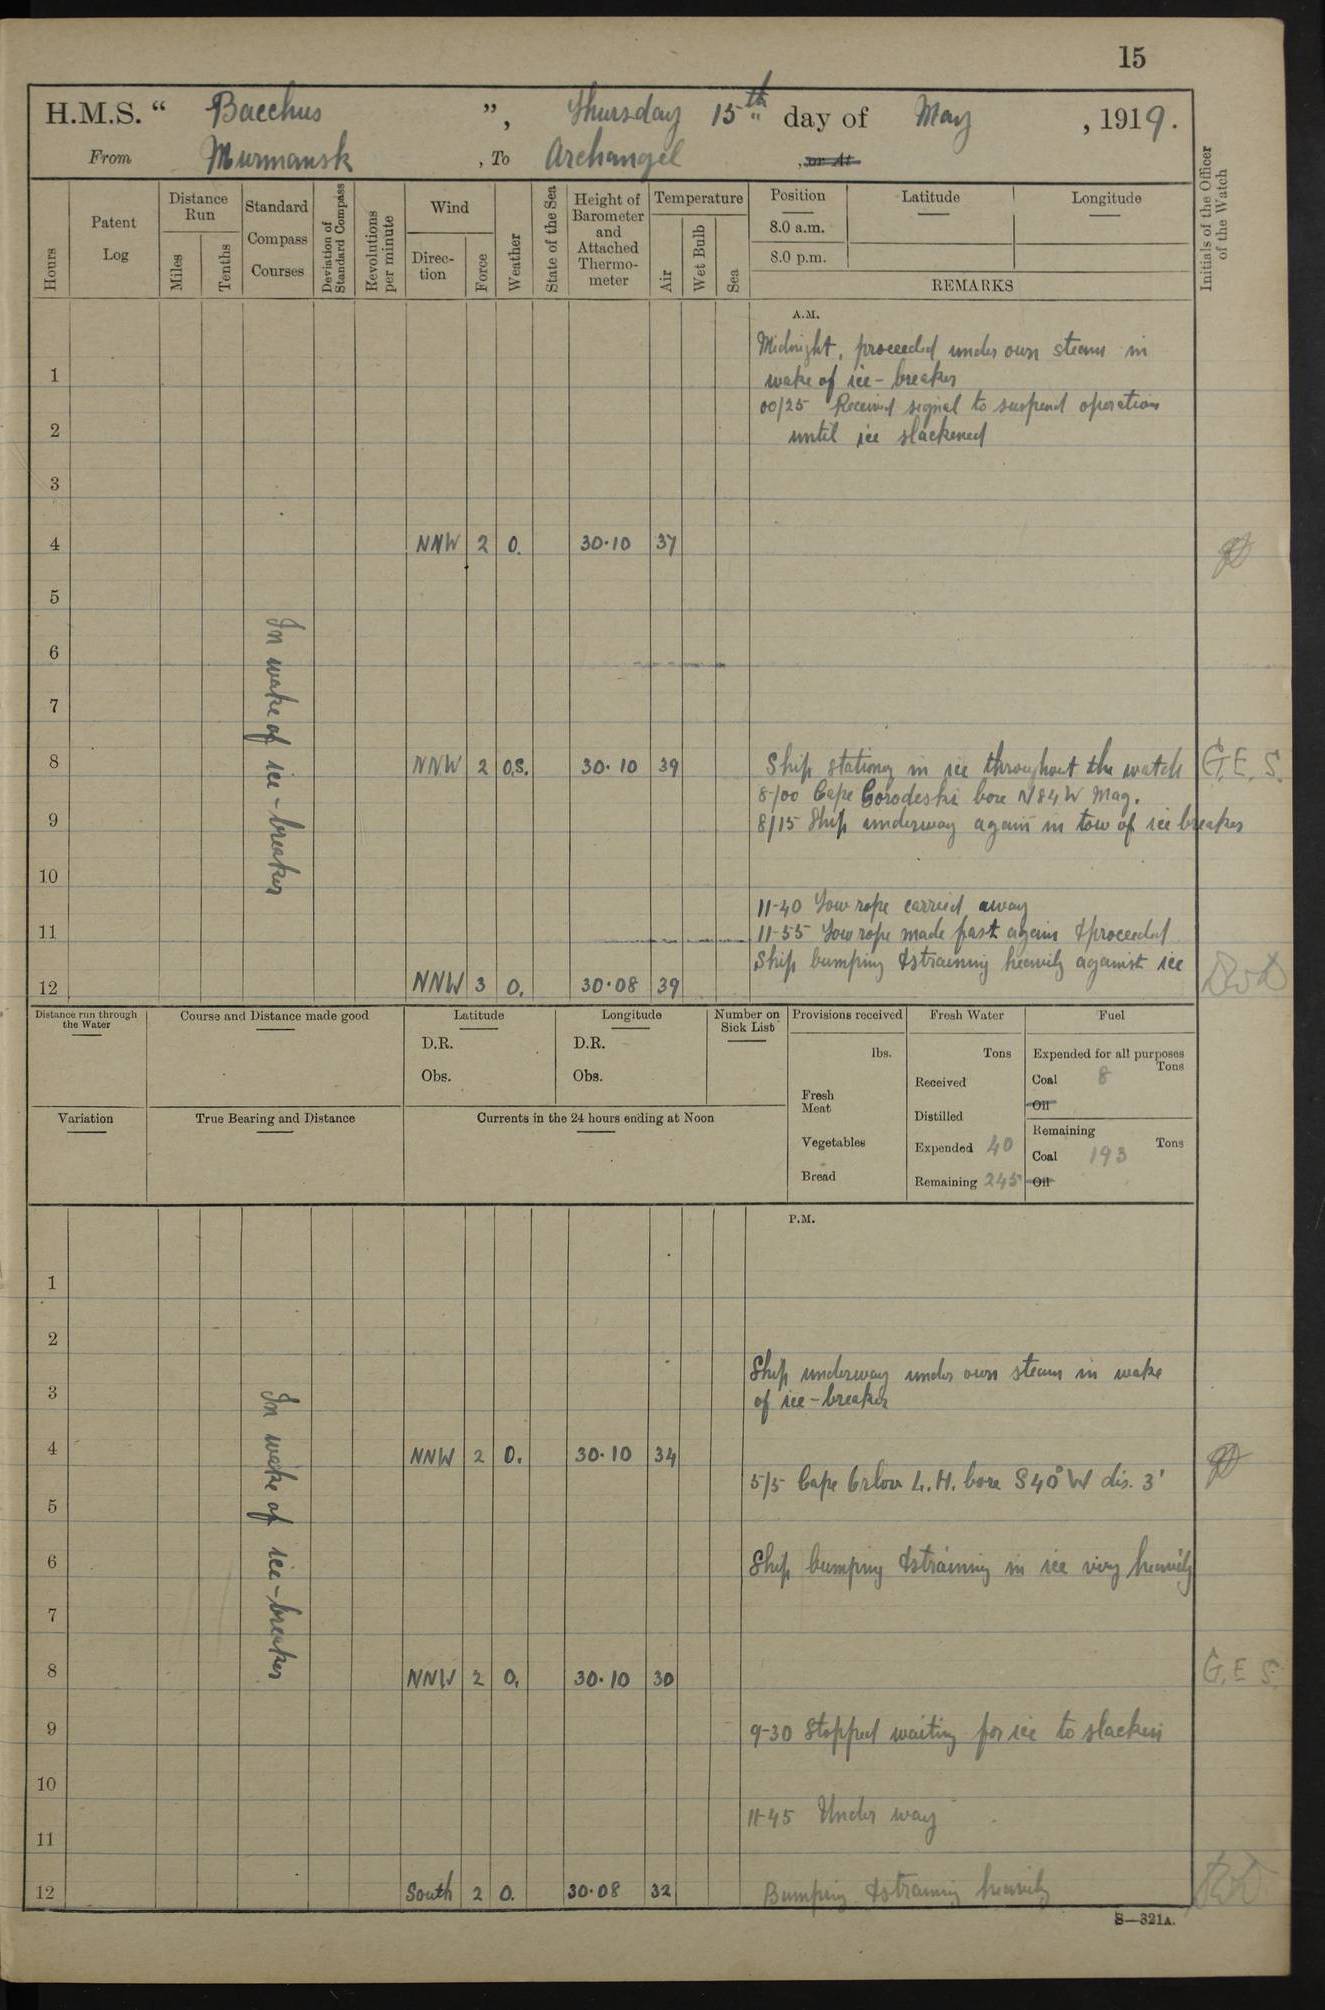 15
H.M.S. “ Bacchus ”, Thursday 15th day of May , 1919.
From Murmansk , To Archangel , or At
Hours
Patent Log
Distance Run
Miles
Tenths
Standard Compass Courses
Deviation of Standard Compass
Revolutions per minute
Wind
Direc- tion
Force
Weather
State of the Sea
Height of Barometer and Attached Thermo- meter
Temperature
Air
Wet Bulb
Sea
Position
8.0 a.m.
8.0 p.m.
Latitude
Longitude
REMARKS
Initials of the Officer of the Watch
A.M.
Midnight, proceeded under own steam in
1 wake of ice-breaker
00/25 Received signal to suspend operation
2 until ice slackened
3
4 NNW 2 O. 30·10 37
5
6
7
In wake of ice-breaker
8 NNW 2 O.S. 30·10 39 Ship stationy in ice throughout the watch G.E.S.
8/00 Cape Gorodeski bore N84W Mag.
9 8/15 Ship underway again in tow of ice breaker
10
11-40 Tow rope carried away
11 11-55 Tow rope made fast again & proceeded
Ship bumping & straining heavily against ice
12 NNW 3 O. 30·08 39
Distance run through the Water
Course and Distance made good
Latitude
D.R.
Obs.
Longitude
D.R.
Obs.
Number on Sick List
Provisions received
lbs.
Fresh Meat
Vegetables
Bread
Fresh Water
Tons
Received
Distilled
Expended 40
Remaining 245
Fuel
Expended for all purposes
Tons
Coal 8
Oil
Remaining
Tons
Coal 193
Oil
Variation
True Bearing and Distance
Currents in the 24 hours ending at Noon
P.M.
1
2
Ship underway under own steam in wake
3 of ice-breaker
4 NNW 2 O. 30·10 34
5/5 Cape Orlov L.H. bore S40°W dis. 3'
5
6 Ship bumping & straining in ice very heavily
7
In wake of ice-breaker
8 NNW 2 O. 30·10 30 G.E.S.
9 9-30 Stopped waiting for ice to slacken
10
11-45 Under way
11
12 South 2 O. 30·08 32 Bumping & straining heavily
S—321A.